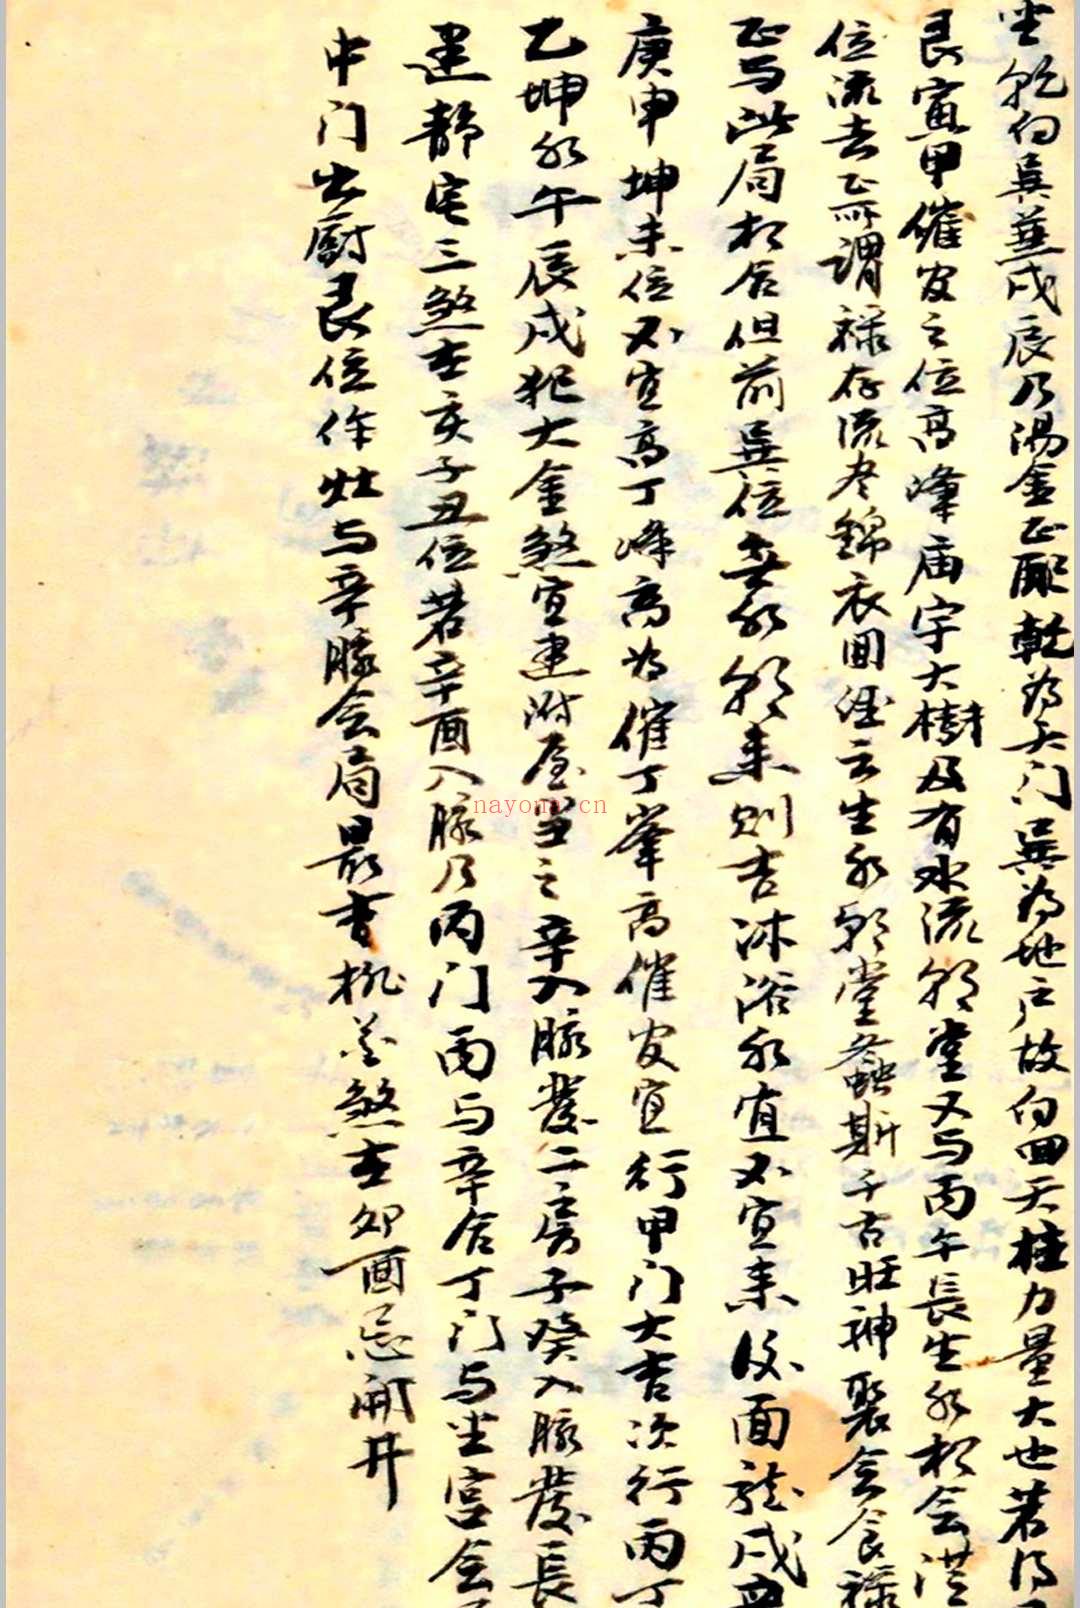 坐乾向巽兼戌辰乃湯金正配乾为天门巽为地户故向回天柱力量大也若得
艮寅甲催官之位高峰庙宇大樹及有水流朝堂又与丙午長生水相会洪
位流去正所謂禄存流尽錦衣回經云生水朝堂螽斯千古旺神聚会食禄
正与此局相合但前巽位来水朝来则吉沐浴水宜不宜来後面龍戌
庚申坤未位不宜高丁峰高为催丁峯高催官宜行甲门大吉次行丙丁
乙坤水午辰戌犯大金煞宜建附屋当之辛入脉發二房子癸入脉發長
建静宅三煞在亥子丑位若辛酉入脉乃丙门丙与辛合丁门与坐宫会
中门出厨艮位作灶与辛脉会局最吉桃花煞在卯酉忌開井
nayona.cn